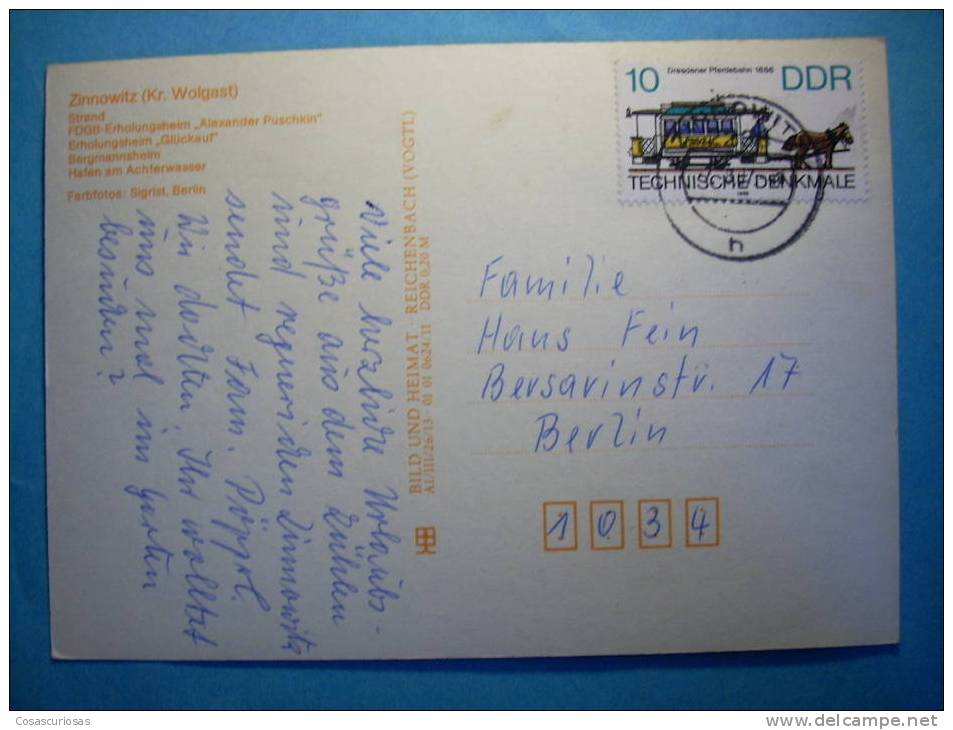 Zinnowitz (Kr. Wolgast)
Strand
FDGB-Erholungsheim „Alexander Puschkin"
Erholungsheim „Glückauf"
Bergmannsheim
Hafen am Achterwasser
Farbfotos: Sigrist, Berlin
Viele herzliche Urlaubs-
grüße aus dem kühlen
und regnerischen Zinnowitz
sendet Fam. Pöppel.
Wir dachten, Ihr wolltet
uns mal im Garten
besuchen?
BILD UND HEIMAT · REICHENBACH (VOGTL)
A1/III/26/13 · 01 01 0624/11 DDR 0,20 M
10 Dresdener Pferdebahn 1886 DDR
TECHNISCHE DENKMALE
h
Familie
Hans Fein
Bersarinstr. 17
Berlin
1034
Cosascuriosas
www.delcampe.net